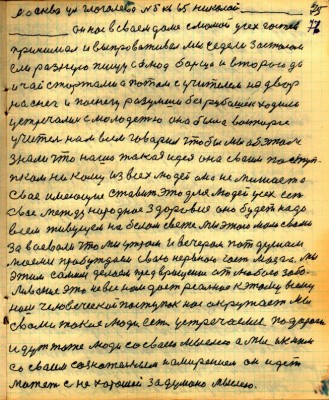 Москва ул Гоголево №5 кв 65 николай 25
он нас в своем доме с мамой усех гостей 77
принимал и выпроваживал мы седели за столом
ели разную пищу с блюд борща и второго до
и чаи с тортами а потом с учителем на двор
на снег и поснегу разумши без рубашек ходили
устречали с молодетью она была во
учитель нам всем говорил чтобы мы об этом
знали что наша такая идея она своим поступ-
ком ни кому из всех людей оно не мешает
свое имеющую ставит это для людей усех
свое международное здоровия оно будет надо
всем живущем на белом свете мы этого мы своим
завоевали что мы утром и вечером
моемии пробуждаем свою нервною часть мозга мы
этим самим делаем предвращении от любого забо-
ливание это неве нам дает реально к этому всему
нам человеческой поступок нас окружает мы
своими такие люди есть устречаеми по дороги
идут тоже люди со своею мыслею а мы с ними
со своим сознательным намирением он идет
может с не хорошей задумано мыслею.